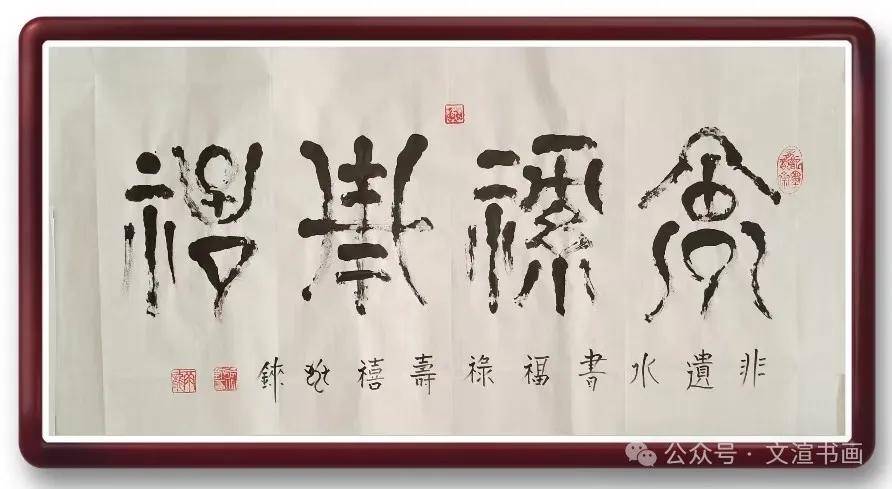 福祿壽禧
非遺水書福祿壽禧
公众号 · 文渲书画